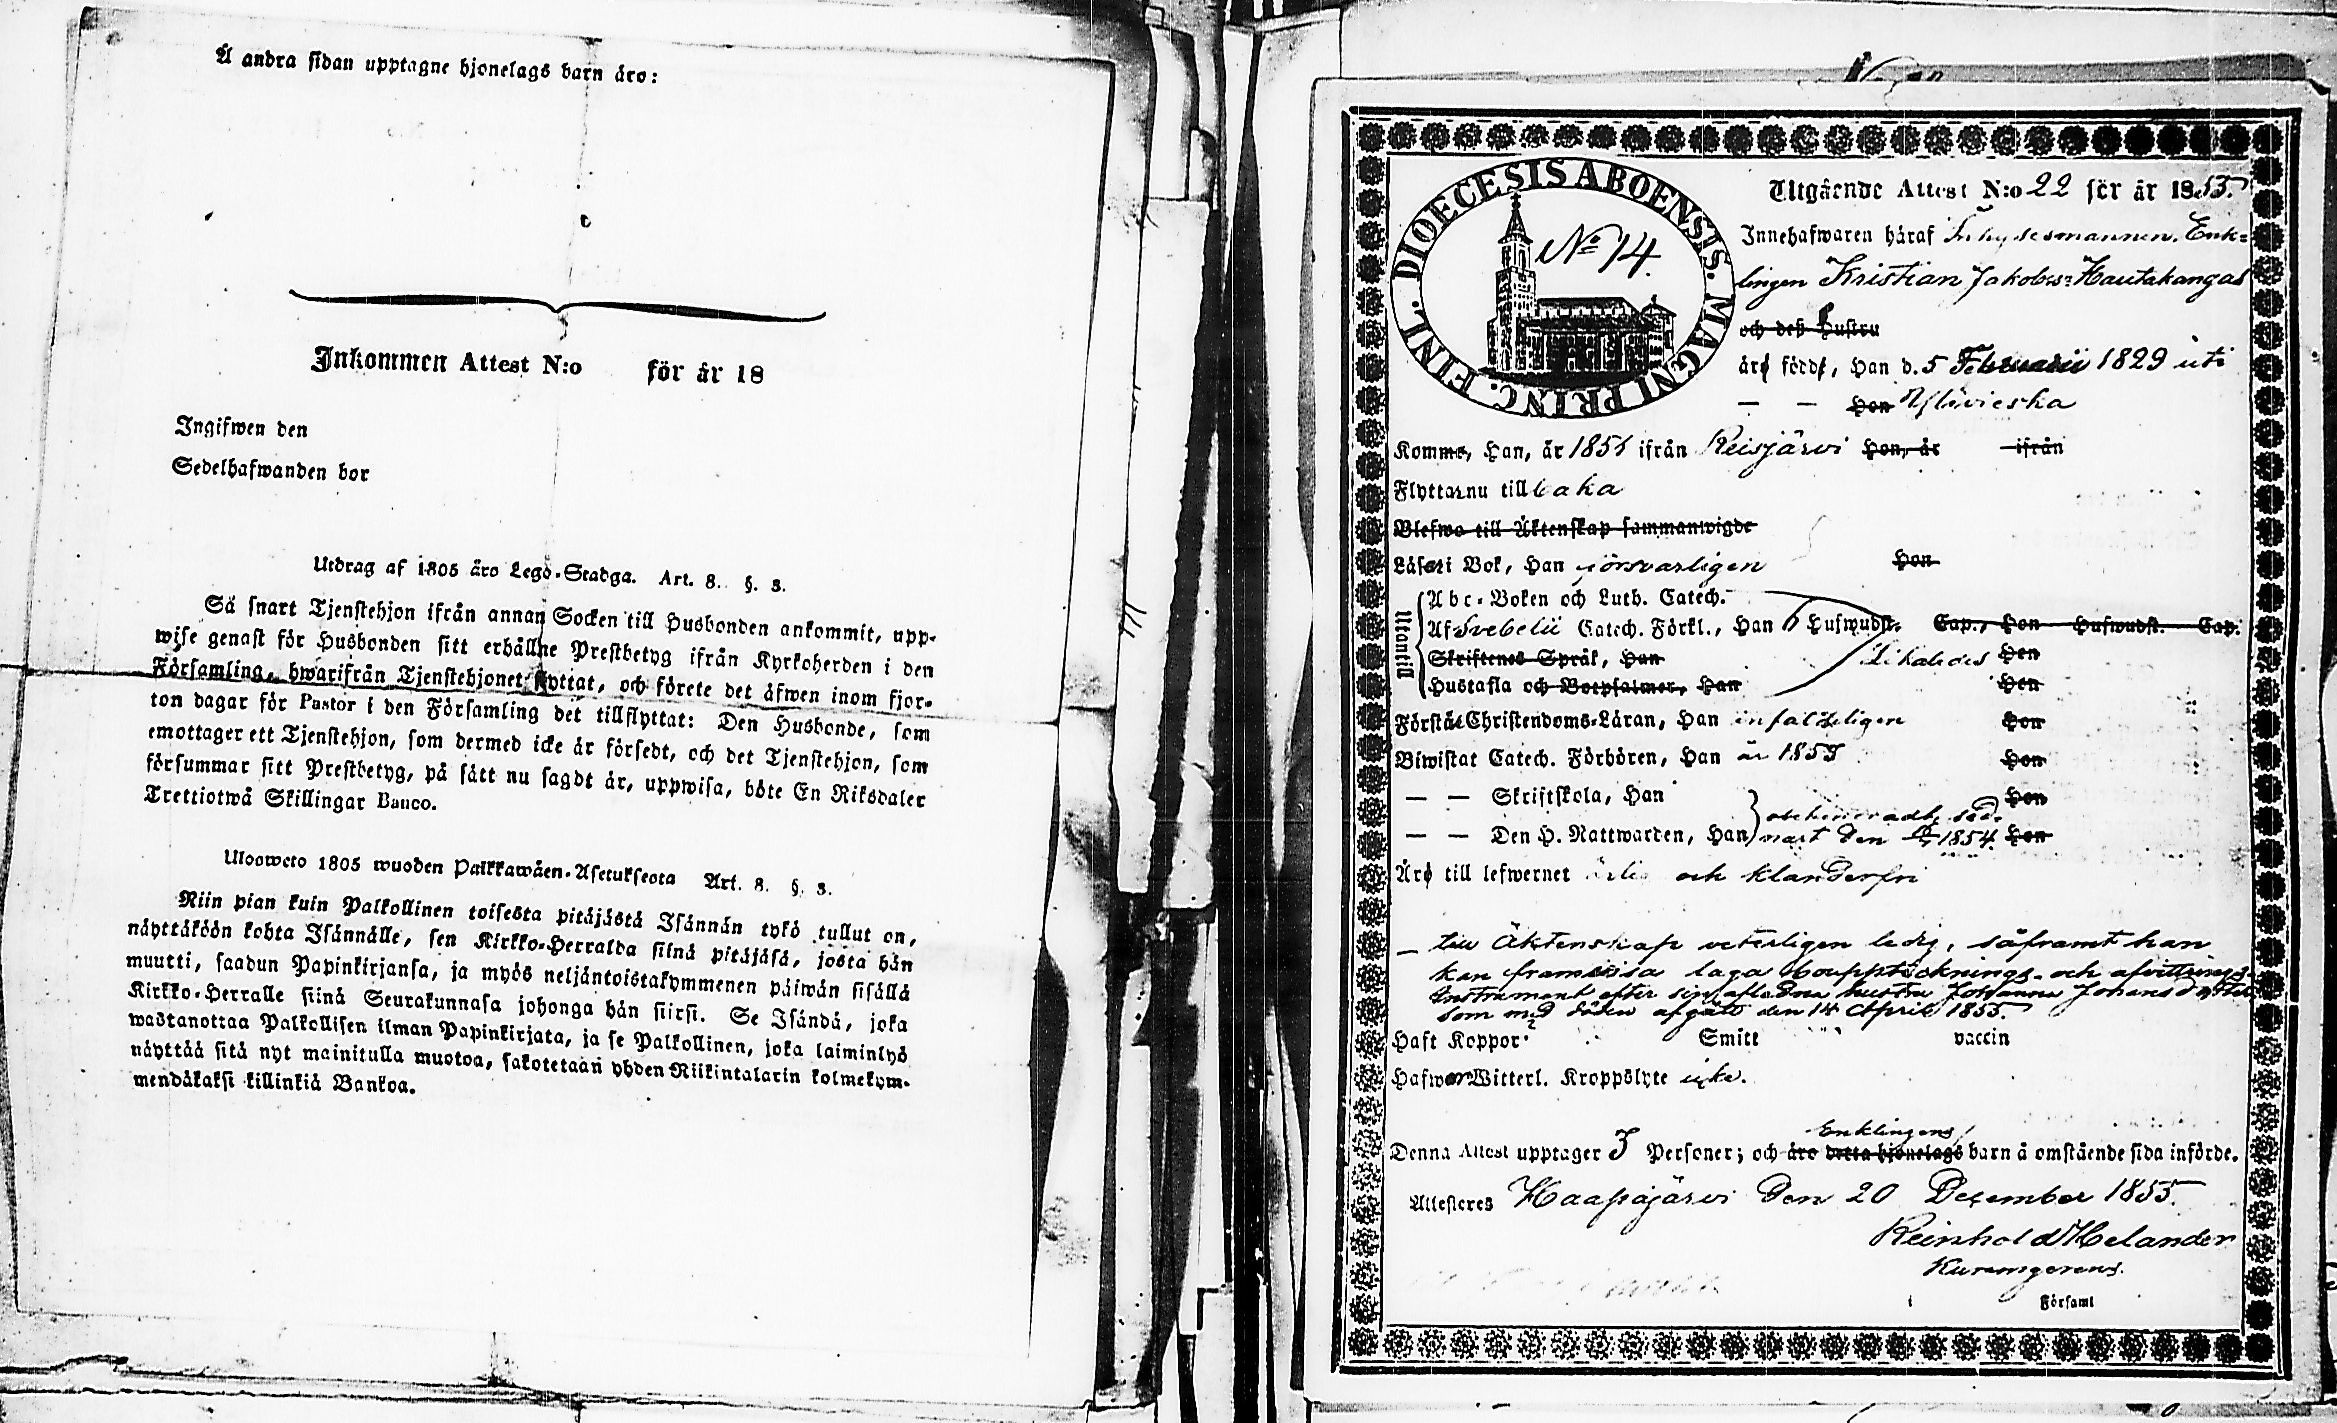 Å andra sidan upptagne hjonelags barn äro:
Inkommen Attest N:o för år 18
Ingifwen den
Sedelhafwanden bor
Utdrag af 1805 års Lego-Stadga. Art. 8. §. 3.
Så snart Tjenstehjon ifrån annan Socken till Husbonden ankommit, upp-
wise genast för Husbonden sitt erhållne Prestbetyg ifrån Kyrkoherden i den
Församling, hwarifrån Tjenstehjonet flyttat, och förete det äfwen inom fjor-
ton dagar för Pastor i den Församling det tillflyttat: Den Husbonde, som
emottager ett Tjenstehjon, som dermed icke är försedt, och det Tjenstehjon, som
försummar sitt Prestbetyg, på sätt nu sagdt är, uppwisa, böte En Riksdaler
Trettiotwå Skillingar Banco.
Uloosweto 1805 wuoden Palkkawäen-Asetuksesta Art. 8. §. 3.
Niin pian kuin Palkollinen toisesta pitäjästä Isännän tykö tullut on,
näyttäköön kohta Isännälle, sen Kirkko-Herralda siinä pitäjäsä, josta hän
muutti, saadun Papinkirjansa, ja myös neljäntoistakymmenen päiwän sisällä
Kirkko-Herralle siinä Seurakunnasa johonga hän siirsi. Se Isändä, joka
wastanottaa Palkollisen ilman Papinkirjata, ja se Palkollinen, joka laiminlyö
näyttää sitä nyt mainitulla muotoa, sakotetaan yhden Riikintalarin kolmekym-
mendäkaksi killinkiä Bankoa.
DIOECESIS ABOENSIS. MAGNI PRINC. FINL.
No 14.
Utgående Attest N:o 22 för år 1855.
Innehafwaren häraf Inhysesmannen, Enk-
lingen Kristian Jakobss: Hautakangas
och deß Hustru
äro födde, Han d. 5 Februarii 1829 uti
— — Hon Ylivieska
Komme, Han, år 1851 ifrån Reisjärvi Hon, år ifrån
Flytta nu tillbaka
Blefwo till Äktenskap sammanwigde
Läser i Bok, Han försvarligen Hon
Utantill
Abc-Boken och Luth. Catech.
Af Svebelii Catech. Förkl., Han 6 Hufwudst. Cap., Hon Hufwudst. Cap.
Skriftenes Språk, Han Likaledes Hon
Hustafla och Botpsalmer, Han Hon
Förstår Christendoms-Läran, Han enfaldeligen Hon
Biwistat Catech. Förhören, Han år 1855 Hon
— — Skriftskola, Han Hon
— — Den H. Nattwarden, Han nart den 1854. Hon
Äro till lefwernet ärlig och klanderfri
— till Äktenskap veterligen ledig, såframt han
kan framvisa laga bouppteknings- och afvittrings-
Instrument efter sin aflidna hustru Johanna Johansdotter
som med döden afgått den 14 April 1855.
Haft Koppor Smitt vaccin
Hafwer Witterl. Kroppslyte icke.
Enklingens
Denna Attest upptager 3 Personer; och äro detta hjonelags barn å omstående sida införde.
Attesteres Haapajärvi den 20 December 1855.
Reinhold Helander
Kuramgerens.
Församl